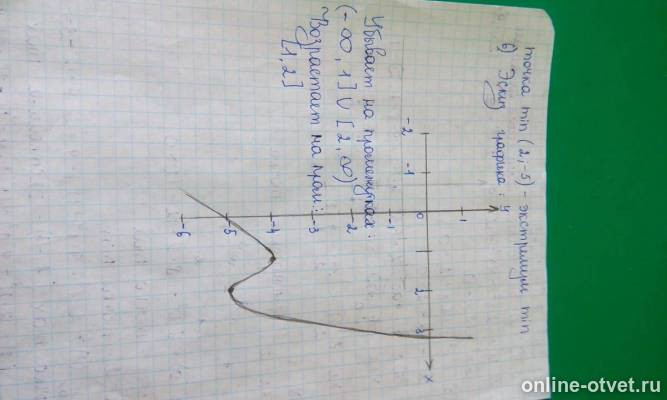 точка min (2,-5) - экстремиум min
б) Эскиз графика:
y
1
-2
-1
0
2
3
x
-1
-2
-3
-4
-5
-6
Убывает на промежутках:
(-∞,1]∪[2,∞)
Возрастает на пром:
[1,2]
online-otvet.ru